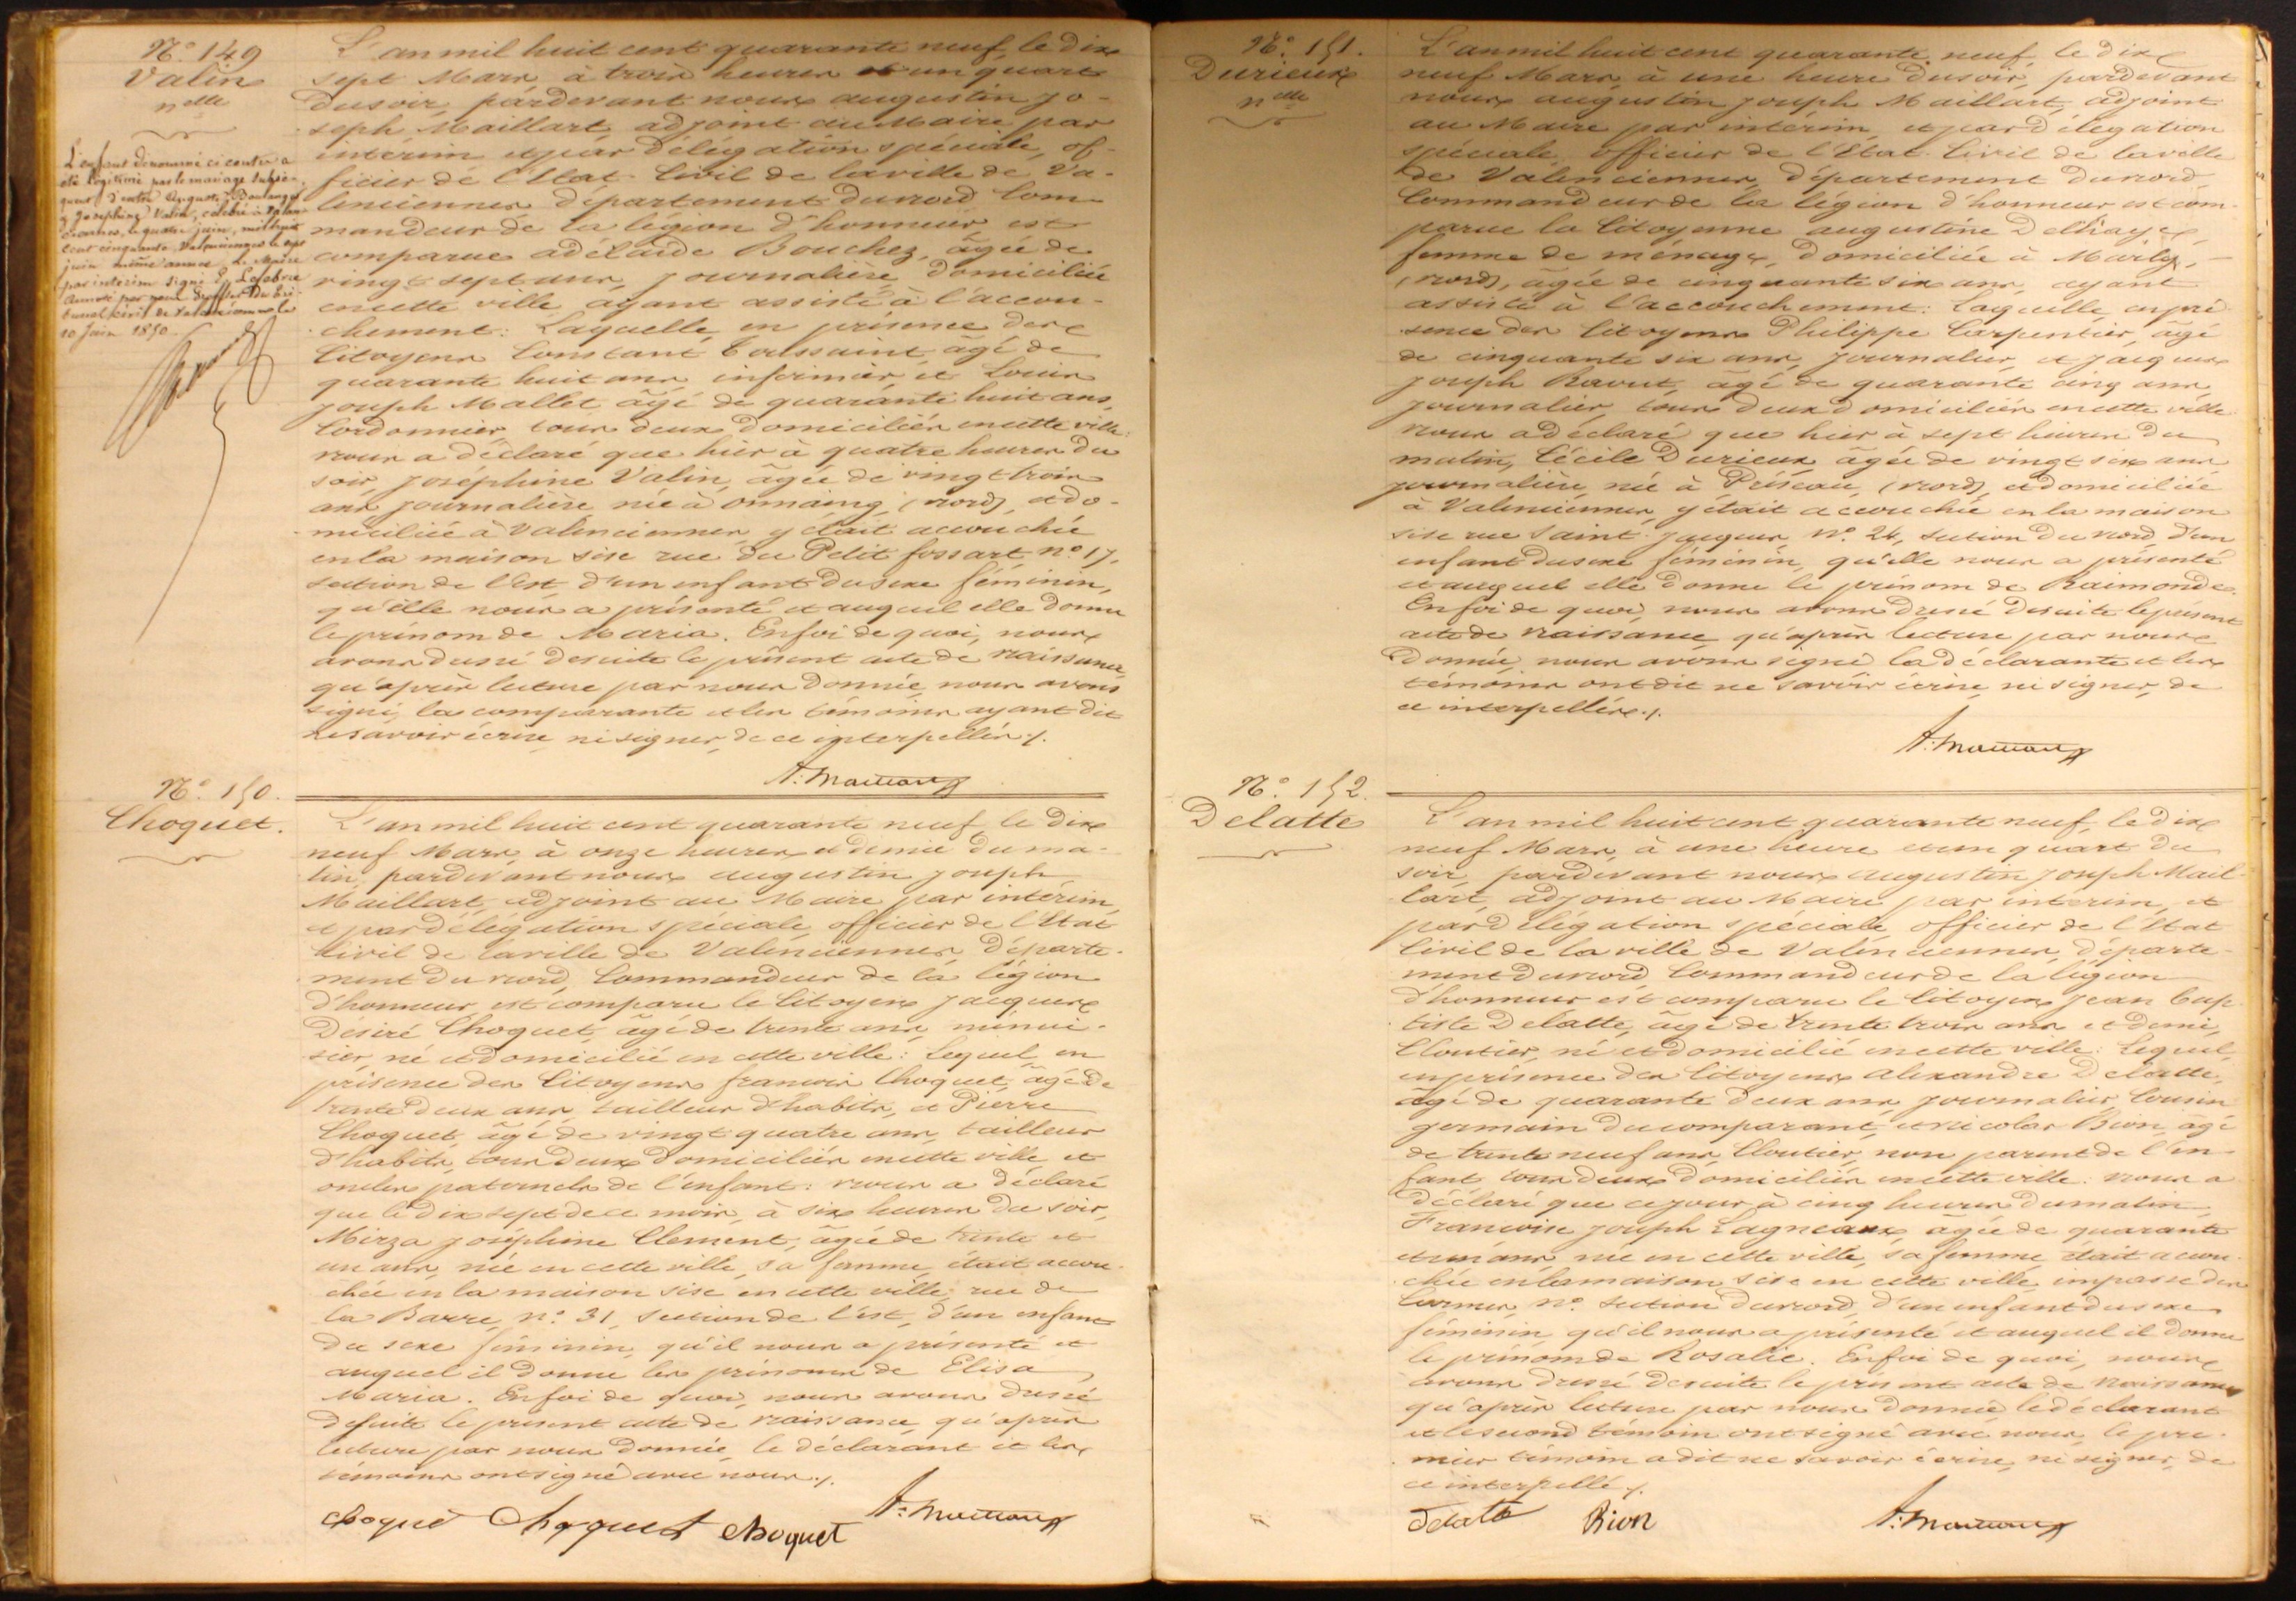 N° 149
Valin
nelle
L'enfant dénommé ci contre a
été légitimé par le mariage subsé-
quent d'entre Auguste Boulanger
& Joséphine Valin, célébré à Valen-
ciennes, le quatre juin, mil huit
cent cinquante. Valenciennes le sept
juin même année. Le Maire
par intérim signé P. Lefebvre
Annoté par nous Greffier du tri-
bunal Civil de Valenciennes le
10 Juin 1850
L'an mil huit cent quarante neuf, le dix
sept Mars, à trois heures et un quart
du soir, pardevant nous augustin jo-
seph Maillart, adjoint au Maire par
intérim et par délégation spéciale, of-
ficier de l'Etat Civil de la ville de Va-
lenciennes, département du nord, Com-
mandeur de la légion d'honneur, est
comparue adélaïde Bouchez, âgée de
vingt sept ans, journalière, domiciliée
en cette ville, ayant assisté à l'accou-
chement: Laquelle, en présence des
Citoyens Constant Toussaint, âgé de
quarante huit ans, infirmier, et Louis
joseph Mallet, âgé de quarante huit ans,
Cordonnier, tous deux domiciliés en cette ville:
nous a déclaré que hier à quatre heures du
soir, joséphine Valin, âgée de vingt trois
ans, journalière, née à onnaing, (nord), et do-
miciliée à Valenciennes, y était accouchée
en la maison sise rue du Petit fossart, n° 17,
section de l'Est, d'un enfant du sexe féminin,
qu'elle nous a présenté et auquel elle donne
le prénom de Maria. En foi de quoi, nous
avons dressé de suite le présent acte de naissance,
qu'après lecture par nous donnée, nous avons
signé, la comparante et les témoins ayant dit
ne savoir écrire, ni signer, de ce interpellés ./.
A. Maillart
N° 150.
Choquet.
L'an mil huit cent quarante neuf, le dix
neuf Mars, à onze heures et demie du ma-
tin, pardevant nous augustin joseph
Maillart, adjoint au Maire par intérim,
et par délégation spéciale, officier de l'Etat
Civil de la ville de Valenciennes, départe-
ment du nord, Commandeur de la légion
d'honneur, est comparu le Citoyen jacques
Désiré Choquet, âgé de trente ans, menui-
sier, né et domicilié en cette ville: Lequel, en
présence des Citoyens francois Choquet, âgé de
trente deux ans, tailleur d'habits, et Pierre
Choquet, âgé de vingt quatre ans, tailleur
d'habits, tous deux domiciliés en cette ville, et
oncles paternels de l'enfant: nous a déclaré
que le dix sept de ce mois, à six heures du soir,
Mirza joséphine Clement, âgée de trente et
un ans, née en cette ville, sa femme, était accou-
chée en la maison sise en cette ville, rue de
la Barre, n° 31, section de l'est, d'un enfant
du sexe féminin, qu'il nous a présenté et
auquel il donne les prénoms de Elisa,
Maria. En foi de quoi, nous avons dressé
de suite le présent acte de naissance, qu'après
lecture par nous donnée, le déclarant et les
témoins ont signé avec nous ./.
choqué Choquet choquet
A. Maillart
N° 151.
Durieux
nelle
L'an mil huit cent quarante neuf, le dix
neuf Mars, à une heure du soir, pardevant
nous augustin joseph Maillart, adjoint
au Maire par intérim, et par délégation
spéciale, officier de l'Etat Civil de la ville
de Valenciennes, département du nord,
Commandeur de la légion d'honneur est com-
parue la Citoyenne augustine Delhaye,
femme de ménage, domiciliée à Marly,
(nord), âgée de cinquante six ans, ayant
assisté à l'accouchement: Laquelle, en pré-
sence des Citoyens Philippe Carpentier, âgé
de cinquante six ans, journalier, et jacques
joseph Ravut, âgé de quarante cinq ans,
journalier, tous deux domiciliés en cette ville:
nous a déclaré que hier à sept heures du
matin, Cécile Durieux, âgée de vingt six ans,
journalière, née à Préseau, (nord), et domiciliée
à Valenciennes, y était accouchée en la maison
sise rue Saint jacques, N° 26, section du nord, d'un
enfant du sexe féminin, qu'elle nous a présenté
et auquel elle donne le prénom de Raimonde.
En foi de quoi, nous avons dressé de suite le présent
acte de naissance, qu'après lecture par nous
donnée, nous avons signé, la déclarante et les
témoins ont dit ne savoir écrire, ni signer, de
ce interpellés ./.
A. Maillart
N° 152.
Delatte
L'an mil huit cent quarante neuf, le dix
neuf Mars, à une heure et un quart du
soir, pardevant nous augustin joseph Mail-
lart, adjoint au Maire par intérim, et
par délégation spéciale, officier de l'Etat
Civil de la ville de Valenciennes, départe-
ment du nord, Commandeur de la légion
d'honneur est comparu le Citoyen jean bap-
tiste Delatte, âgé de trente trois ans et demi,
Cloutier, né et domicilié en cette ville: Lequel,
en présence des Citoyens alexandre Delatte,
âgé de quarante deux ans, journalier, Cousin
germain du comparant, et nicolas Bion, âgé
de trente neuf ans, Cloutier, non parent de l'en-
fant, tous deux domiciliés en cette ville: nous a
déclaré que ce jour, à cinq heures du matin,
Francoise joseph Lagneaux, âgée de quarante
et un ans, née en cette ville, sa femme, était accou-
chée en la maison sise en cette ville, impasse des
Carmes, n° section du nord, d'un enfant du sexe
féminin, qu'il nous a présenté et auquel il donne
le prénom de Rosalie. En foi de quoi, nous
avons dressé de suite le présent acte de naissance
qu'après lecture par nous donnée, le déclarant
et le second témoin ont signé avec nous, le pre-
mier témoin a dit ne savoir écrire, ni signer, de
ce interpellé ./.
delatte Bion
A. Maillart